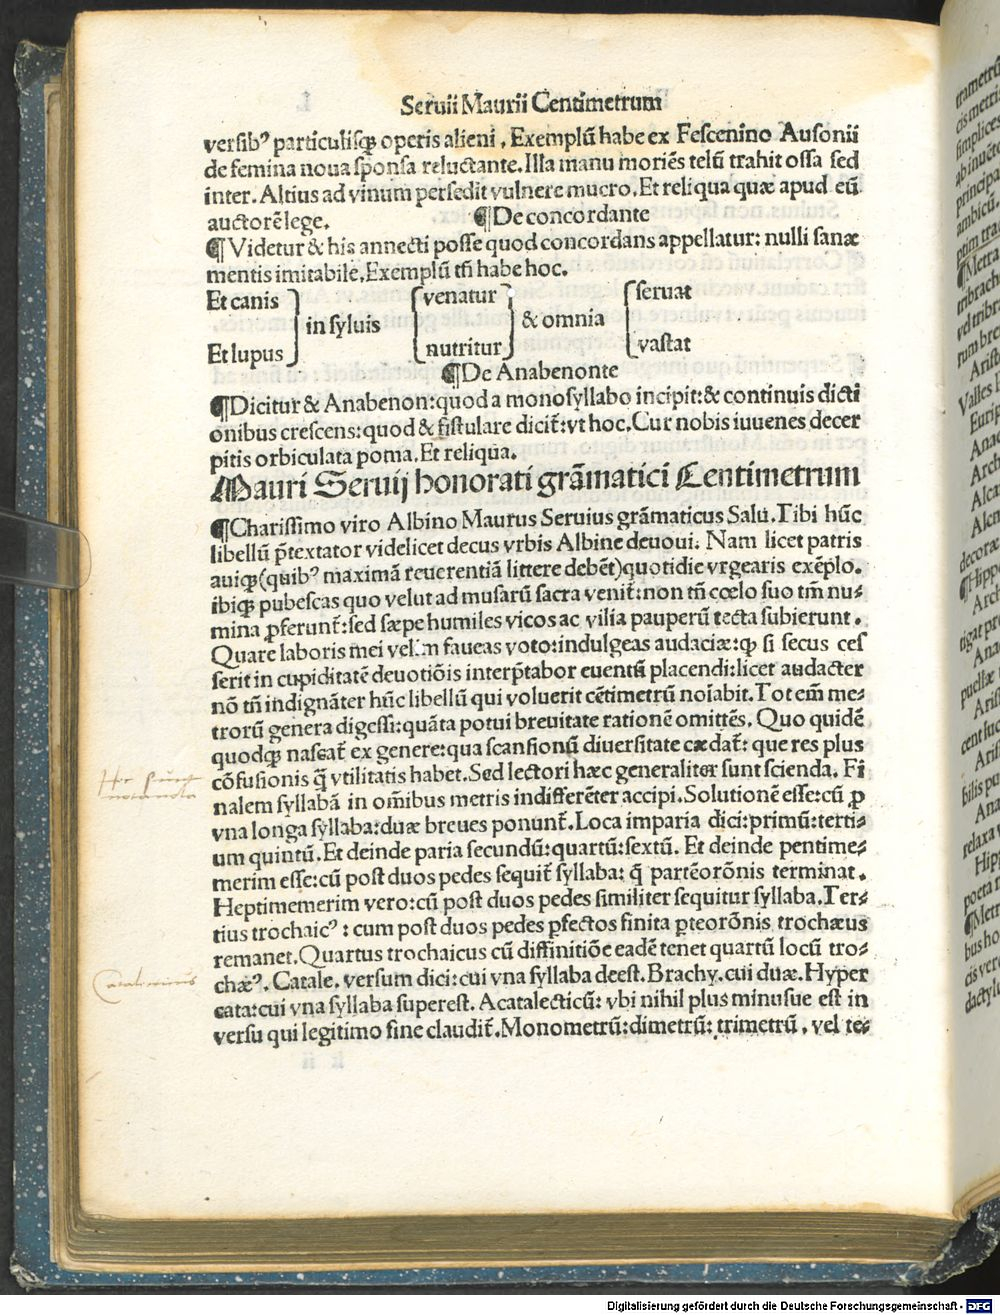 Seruii Maurii Centimetrum
versibꝰ particulisqꝫ operis alieni . Exemplū habe ex Fescenino Ausonii
de femina noua sponsa reluctante. Illa manu moriēs telū trahit ossa sed
inter. Altius ad vinum persedit vulnere mucro. Et reliqua quæ apud eū
auctorē lege. ¶ De concordante
¶ Videtur & his annecti posse quod concordans appellatur: nulli sanæ
mentis imitabile. Exemplū tñ habe hoc.
Et canis venatur seruat
in syluis & omnia
Et lupus nutritur vastat
¶ De Anabenonte
¶ Dicitur & Anabenon: quod a monosyllabo incipit: & continuis dicti
onibus crescens: quod & fistulare dicit̄: vt hoc. Cur nobis iuuenes decer
pitis orbiculata poma. Et reliqua.
Mauri Seruij honorati grāmatici Centimetrum
¶ Charissimo viro Albino Maurus Seruius grāmaticus Salu. Tibi hūc
libellū p̄textator videlicet decus vrbis Albine deuoui. Nam licet patris
auiqꝫ (quibꝰ maximā reuerentiā littere debēt) quotidie vrgearis exēplo.
ibiqꝫ pubescas quo velut ad musarū sacra venit̄: non tñ cœlo suo tm̄ nu⸗
mina ꝓferunt̄: sed sæpe humiles vicos ac vilia pauperū tecta subierunt .
Quare laboris mei velim faueas voto: indulgeas audaciæ: ꝙ si secus ces
serit in cupiditatē deuotiōis interp̄tabor euentū placendi: licet audacter
nō tñ indignāter hūc libellū qui voluerit cētimetrū noīabit. Tot em̄ me⸗
trorū genera digessi: quāta potui breuitate rationē omittēs. Quo quidē
quodqꝫ nascat̄ ex genere: qua scansionū diuersitate cædat̄: que res plus
cōfusionis q̄ vtilitatis habet. Sed lectori hæc generaliter sunt scienda. Fi
Hic sunt
notanda
nalem syllabā in om̄ibus metris indifferēter accipi. Solutionē esse: cū ꝓ
vna longa syllaba: duæ breues ponunt̄. Loca imparia dici: primū: terti⸗
um quintū. Et deinde paria secundū: quartū: sextū. Et deinde pentime⸗
merim esse: cū post duos pedes sequit̄ syllaba: q̄ partēorōnis terminat .
Heptimemerim vero: cū post duos pedes similiter sequitur syllaba. Ter⸗
tius trochaicꝰ : cum post duos pedes ꝑfectos finita ꝑteorōnis trochæus
remanet. Quartus trochaicus cū diffinitiōe eadē tenet quartū locū tro⸗
chæꝰ. Catale. versum dici: cui vna syllaba deest. Brachy. cui duæ. Hyper
cata: cui vna syllaba superest. Acatalecticū: vbi nihil plus minusue est in
versu qui legitimo fine claudit̄. Monometrū: dimetrū: trimetrū . vel te⸗
Digitalisierung gefördert durch die Deutsche Forschungsgemeinschaft - DFG